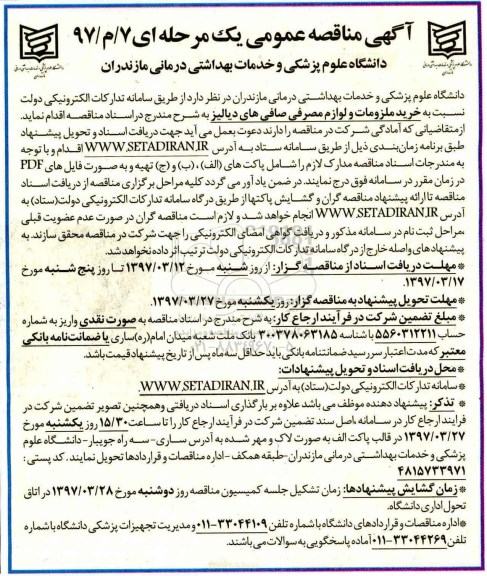 آگهی مناقصه عمومی یک مرحله ای ۷/م/۹۷
دانشگاه علوم پزشکی و خدمات بهداشتی درمانی مازندران
دانشگاه علوم پزشکی و خدمات بهداشتی درمانی مازندران در نظر دارد از طریق سامانه تدارکات الکترونیکی دولت
نسبت به خرید ملزومات و لوازم مصرفی صافی های دیالیز به شرح مندرج در اسناد مناقصه اقدام نماید.
از متقاضیانی که آمادگی شرکت در مناقصه را دارند دعوت بعمل می آید جهت دریافت اسناد و تحویل پیشنهاد
طبق برنامه زمان‌بندی ذیل از طریق سامانه ستاد به آدرس WWW.SETADIRAN.IR اقدام و با توجه
به مندرجات اسناد مناقصه مدارک لازم را شامل پاکت های (الف)، (ب) و (ج) تهیه و به صورت فایل های PDF
در زمان مقرر در سامانه فوق درج نمایند. در ضمن یادآور می گردد کلیه مراحل برگزاری مناقصه از دریافت اسناد
مناقصه تا ارائه پیشنهاد مناقصه گران و گشایش پاکتها از طریق درگاه سامانه تدارکات الکترونیکی دولت(ستاد) به
آدرس WWW.SETADIRAN.IR انجام خواهد شد و لازم است مناقصه گران در صورت عدم عضویت قبلی
،مراحل ثبت نام در سامانه مذکور و دریافت گواهی امضای الکترونیکی را جهت شرکت در مناقصه محقق سازند. به
پیشنهادهای واصله خارج از درگاه سامانه تدارکات الکترونیکی دولت ترتیب اثر داده نخواهد شد.
* مهلت دریافت اسناد از مناقصه گزار: از روز شنبه مورخ ۱۳۹۷/۰۳/۱۲ تا روز پنج شنبه مورخ
۱۳۹۷/۰۳/۱۷.
* مهلت تحویل پیشنهاد به مناقصه گزار: روز یکشنبه مورخ ۱۳۹۷/۰۳/۲۷.
* مبلغ تضمین شرکت در فرآیند ارجاع کار: به شرح مندرج در اسناد مناقصه به صورت نقدی واریز به شماره
حساب ۵۵۶۰۳۱۲۲۱۱ با شناسه ۳۰۰۳۷۸۰۶۳۱۸۵ بانک ملت شعبه میدان امام(ره) ساری یا ضمانت‌نامه بانکی
معتبر که مدت اعتبار سررسید ضمانتنامه بانکی باید حداقل سه ماه پس از تاریخ پیشنهاد قیمت باشد.
* محل دریافت اسناد و تحویل پیشنهادات:
* سامانه تدارکات الکترونیکی دولت(ستاد) به آدرس WWW.SETADIRAN.IR.
* تذکر: پیشنهاد دهنده موظف می باشد علاوه بر بارگذاری اسناد دریافتی وهمچنین تصویر تضمین شرکت در
فرایند ارجاع کار در سامانه،اصل سند تضمین شرکت در فرآیند ارجاع کار را تا ساعت ۱۵/۳۰ روز یکشنبه مورخ
۱۳۹۷/۰۳/۲۷ در قالب پاکت الف به صورت لاک و مهر شده به آدرس ساری- سه راه جویبار- دانشگاه علوم
پزشکی و خدمات بهداشتی درمانی مازندران-طبقه همکف - اداره مناقصات و قراردادها تحویل نمایند. کد پستی :
۴۸۱۵۷۳۳۹۷۱
* زمان گشایش پیشنهادها: زمان تشکیل جلسه کمیسیون مناقصه روز دوشنبه مورخ ۱۳۹۷/۰۳/۲۸ در اتاق
تحول اداری دانشگاه.
*اداره مناقصات و قراردادهای دانشگاه با شماره تلفن ۳۳۰۴۴۱۰۹-۰۱۱ و مدیریت تجهیزات پزشکی دانشگاه با شماره
تلفن ۳۳۰۴۴۲۶۹-۰۱۱ آماده پاسخگویی به سوالات می باشند.